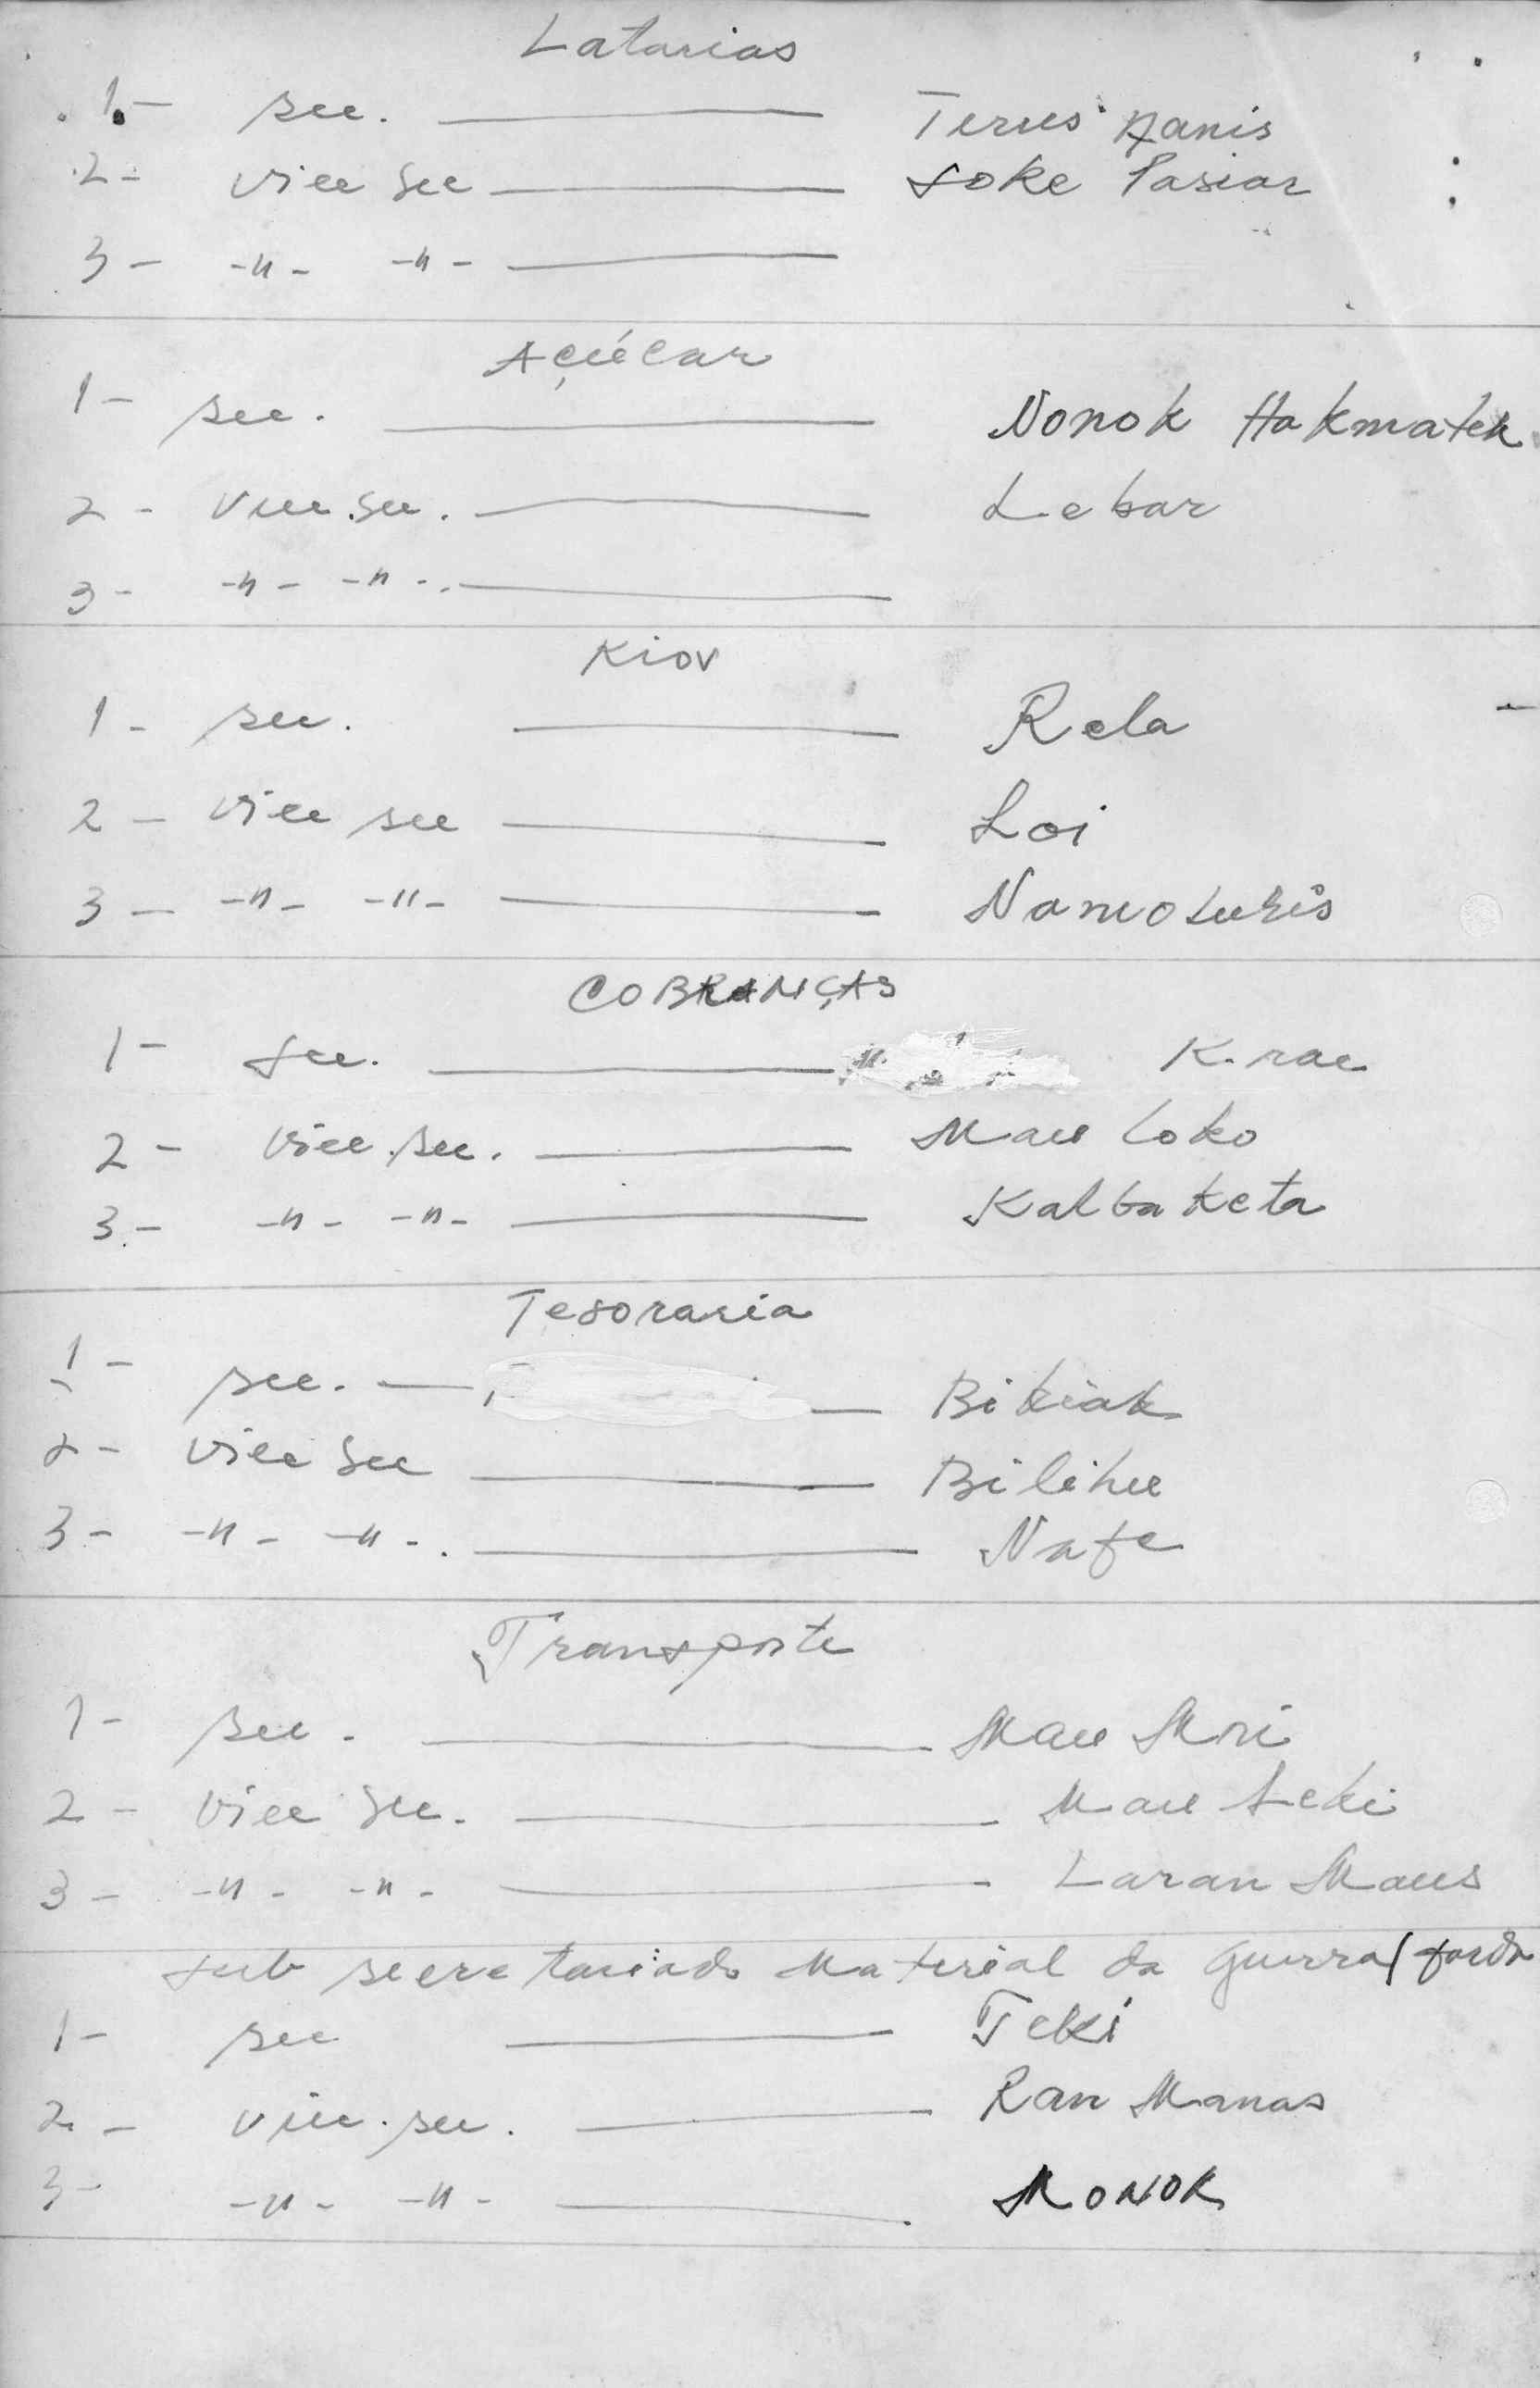 Latarias
1- sec. Terus Nanis
2- vice Sec Soke Pasiar
3- -"- -"-
Açúcar
1- sec. Nonok Hakmatek
2- vice.sec. Lebar
3- -"- -"-
Kiov
1- sec. Rela
2- vice sec Loi
3- -"- -"- Namoturis
COBRANÇAS
1- sec. K. rae
2- vice.sec. Mau Loko
3- -"- -"- Kalbaketa
Tesoraria
1- sec. Bikiak
2- vice Sec Bilihu
3- -"- -"- Nafe
Transporte
1- sec. Mau Mri
2- vice Sec. Mau Leki
3- -"- -"- Laran Maus
Sub secretariado Material da Guerra/farda
1- sec Teki
2- vice.sec. Ran Manas
3- -"- -"- MONOK